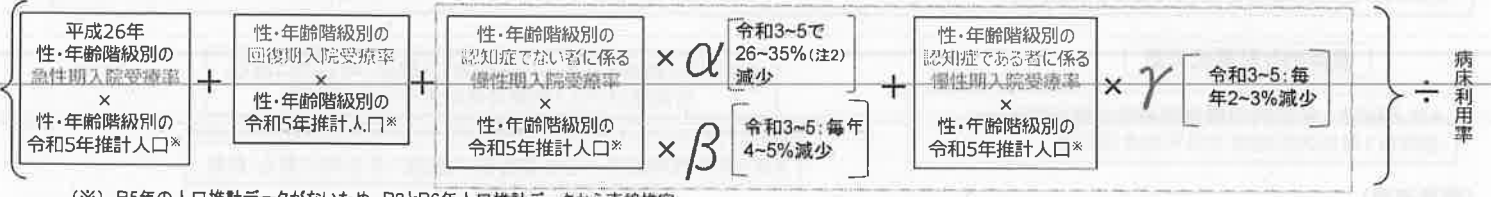 平成26年
性・年齢階級別の
急性期入院受療率
×
性・年齢階級別の
令和5年推計人口※
+
性・年齢階級別の
回復期入院受療率
×
性・年齢階級別の
令和5年推計人口※
+
性・年齢階級別の
認知症でない者に係る
慢性期入院受療率
×
性・年齢階級別の
令和5年推計人口※
×α
令和3~5で
26~35%(注2)
減少
×β
令和3~5:毎年
4~5%減少
+
性・年齢階級別の
認知症である者に係る
慢性期入院受療率
×
性・年齢階級別の
令和5年推計人口※
×γ
令和3~5:毎
年2~3%減少
÷
病床利用率